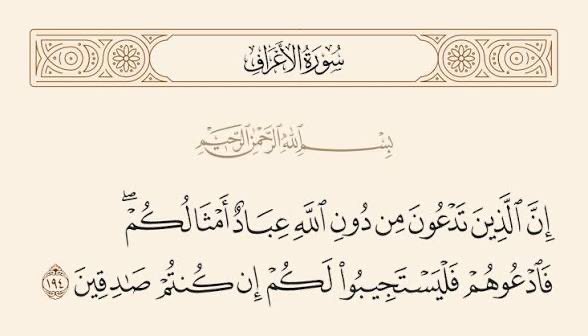 سُورَةُ الأَعْرَافِ
بِسْمِ اللَّهِ الرَّحْمَٰنِ الرَّحِيمِ
إِنَّ ٱلَّذِينَ تَدْعُونَ مِن دُونِ ٱللَّهِ عِبَادٌ أَمْثَالُكُمْۖ
فَٱدْعُوهُمْ فَلْيَسْتَجِيبُوا۟ لَكُمْ إِن كُنتُمْ صَـٰدِقِينَ ١٩٤